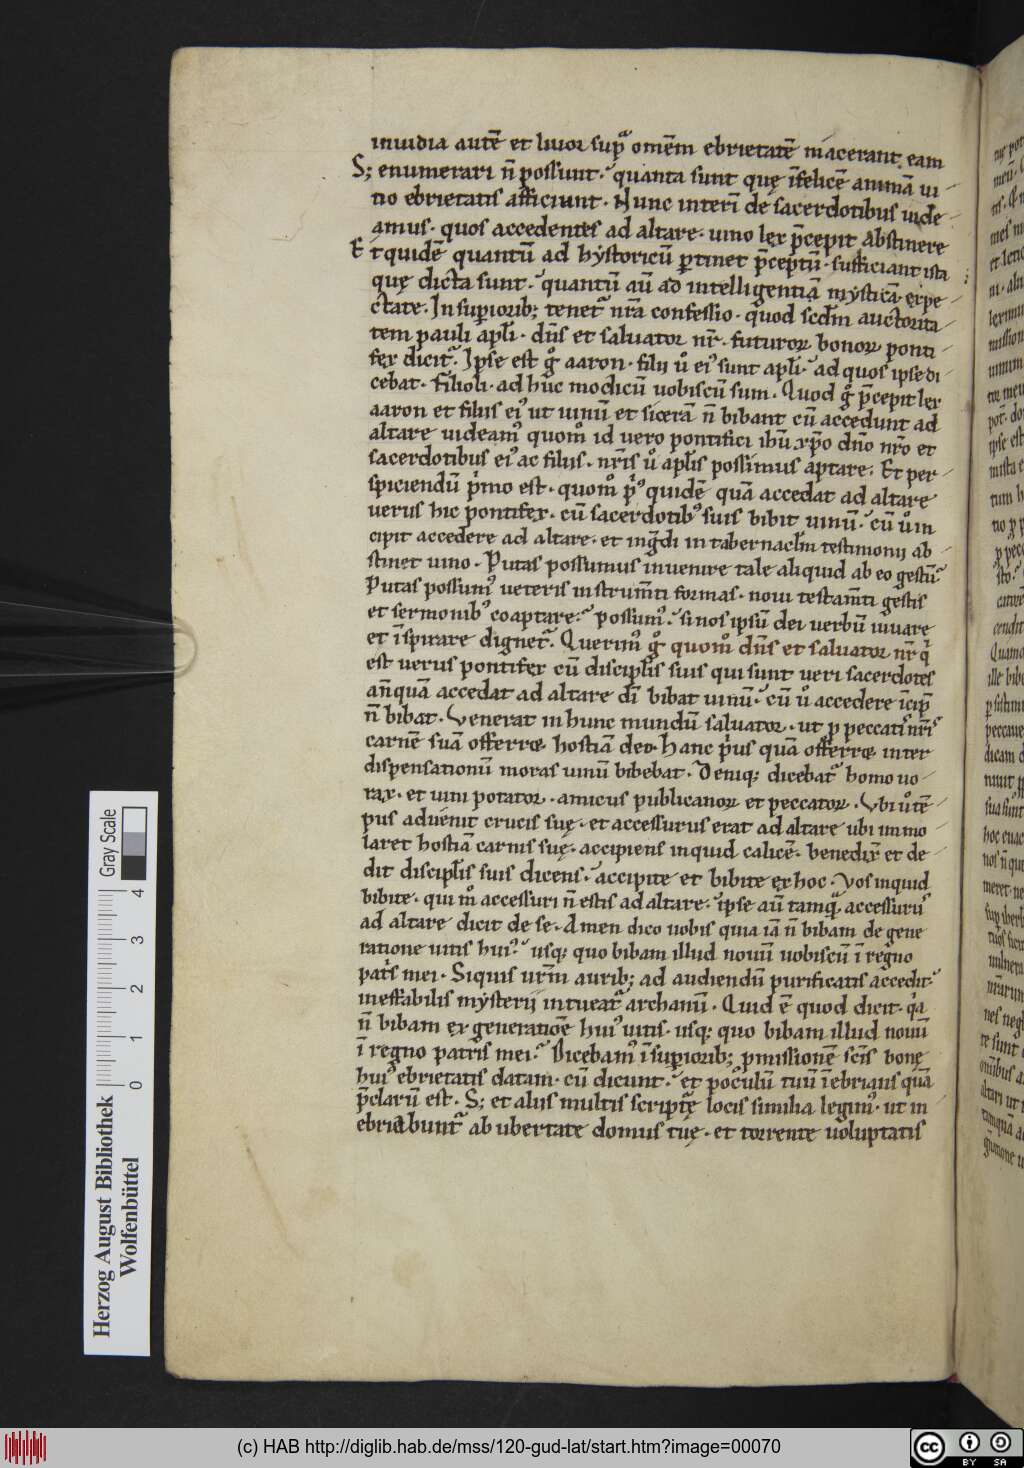 inuidia autē et liuor sup̄ omēm ebrietatē macerant eam
S; enumerari n̄ possunt. quanta sunt quę īfelicē animā ui-
tio ebrietatis afficiunt. Nunc interī de sacerdotibus uide-
amus. quos accedentes ad altare. uino lex p̄cepit abstinere
Et quidē quantū ad hystoricū ptinet p̄ceptū. sufficiant ista
quę dicta sunt. quantū aū ad intelligentiā mysticā. expe-
ctate. In supiorib; tenet nr̄a confessio. quod scdm auctorita-
tem pauli apłi. dn̄s et saluator nr̄. futuroꝝ bonoꝝ ponti-
fex dicit. Ipse est g aaron. filii u ei sunt apłi. ad quos ipse di-
cebat. Filioli. ad huc modicū uobiscū sum. Quod g p̄cepit lex
aaron et filiis ei ut uinū et sicerā n̄ bibant cū accedunt ad
altare uideam quom id uero pontifici ihū xp̄o dn̄o nr̄o et
sacerdotibus ei ac filiis. nr̄is u apłis possimus aptare. Et per-
spiciendū pmo est. quom p quidē quā accedat ad altare
uerus hic pontifex. cū sacerdotib suis bibit uinū. cū u in-
cipit accedere ad altare. et ingdi in tabernaclm testimonii ab-
stinet uino. Putas possumus inuenire tale aliquid ab eo gestū.
Putas possum ueteris instrumti formas. noui testamti gestis
et sermonib coaptare. possum. si nos ipsū dei uerbū iuuare
et īspirare dignet. Querim g quom dn̄s et saluator nr̄ q
est uerus pontifex cū disciplis suis qui sunt ueri sacerdotes
an̄quā accedat ad altare dī bibat uinū. cū u accedere īcip
n̄ bibat. Venerat in hunc mundū saluator. ut p peccatis nr̄is
carnē suā offerre hostiā deo. Hanc pus quā offerre inter
dispensationū moras uinū bibebat. Deniq; dicebat homo uo-
rax. et uini potator. amicus publicanoꝝ et peccatoꝝ. Vbi u tē-
pus aduenit crucis suę. et accessurus erat ad altare ubi immo-
laret hostiā carnis suę. accipiens inquid calicē. benedix̄ et de-
dit disciplis suis dicens. accipite et bibite ex hoc. Vos inquid
bibite. qui m accessuri n̄ estis ad altare. ipse aū tamq accessurus
ad altare dicit de se. Amen dico uobis quia iā n̄ bibam de gene-
ratione uitis hui. usq; quo bibam illud nouū uobiscū ī regno
patris mei. Siquis urm aurib; ad audiendū purificatis accedit.
ineffabilis mysterii intueat archanū. Quid ē quod dicit. qa
n̄ bibam ex generatiōe hui uitis. usq; quo bibam illud nouū
ī regno patris mei. Dicebam ī supiorib; pmissionē scīs bonę
hui ebrietatis datam. cū dicunt. et poculū tuū īebrians quā
p̄clarū est. S; et aliis multis scriptę locis similia legim. ut in-
ebriabunt ab ubertate domus tuę. et torrente uoluptatis
Gray Scale
0 1 2 3 4
Herzog August Bibliothek
Wolfenbüttel
(c) HAB http://diglib.hab.de/mss/120-gud-lat/start.htm?image=00070
cc BY SA